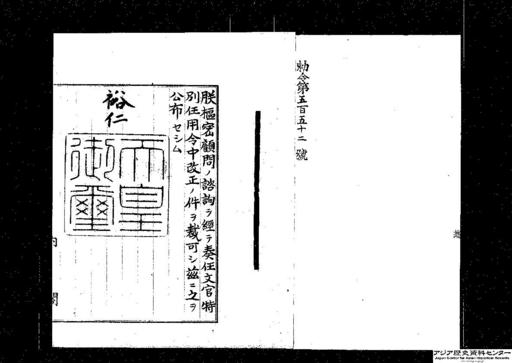 勅令第五百五十二號
朕樞密顧問ノ諮詢ヲ經テ奏任文官特
別任用令中改正ノ件ヲ裁可シ茲ニ之ヲ
公布セシム
裕仁
天皇
御璽
内閣
アジア歴史資料センター
Japan Center for Asian Historical Records